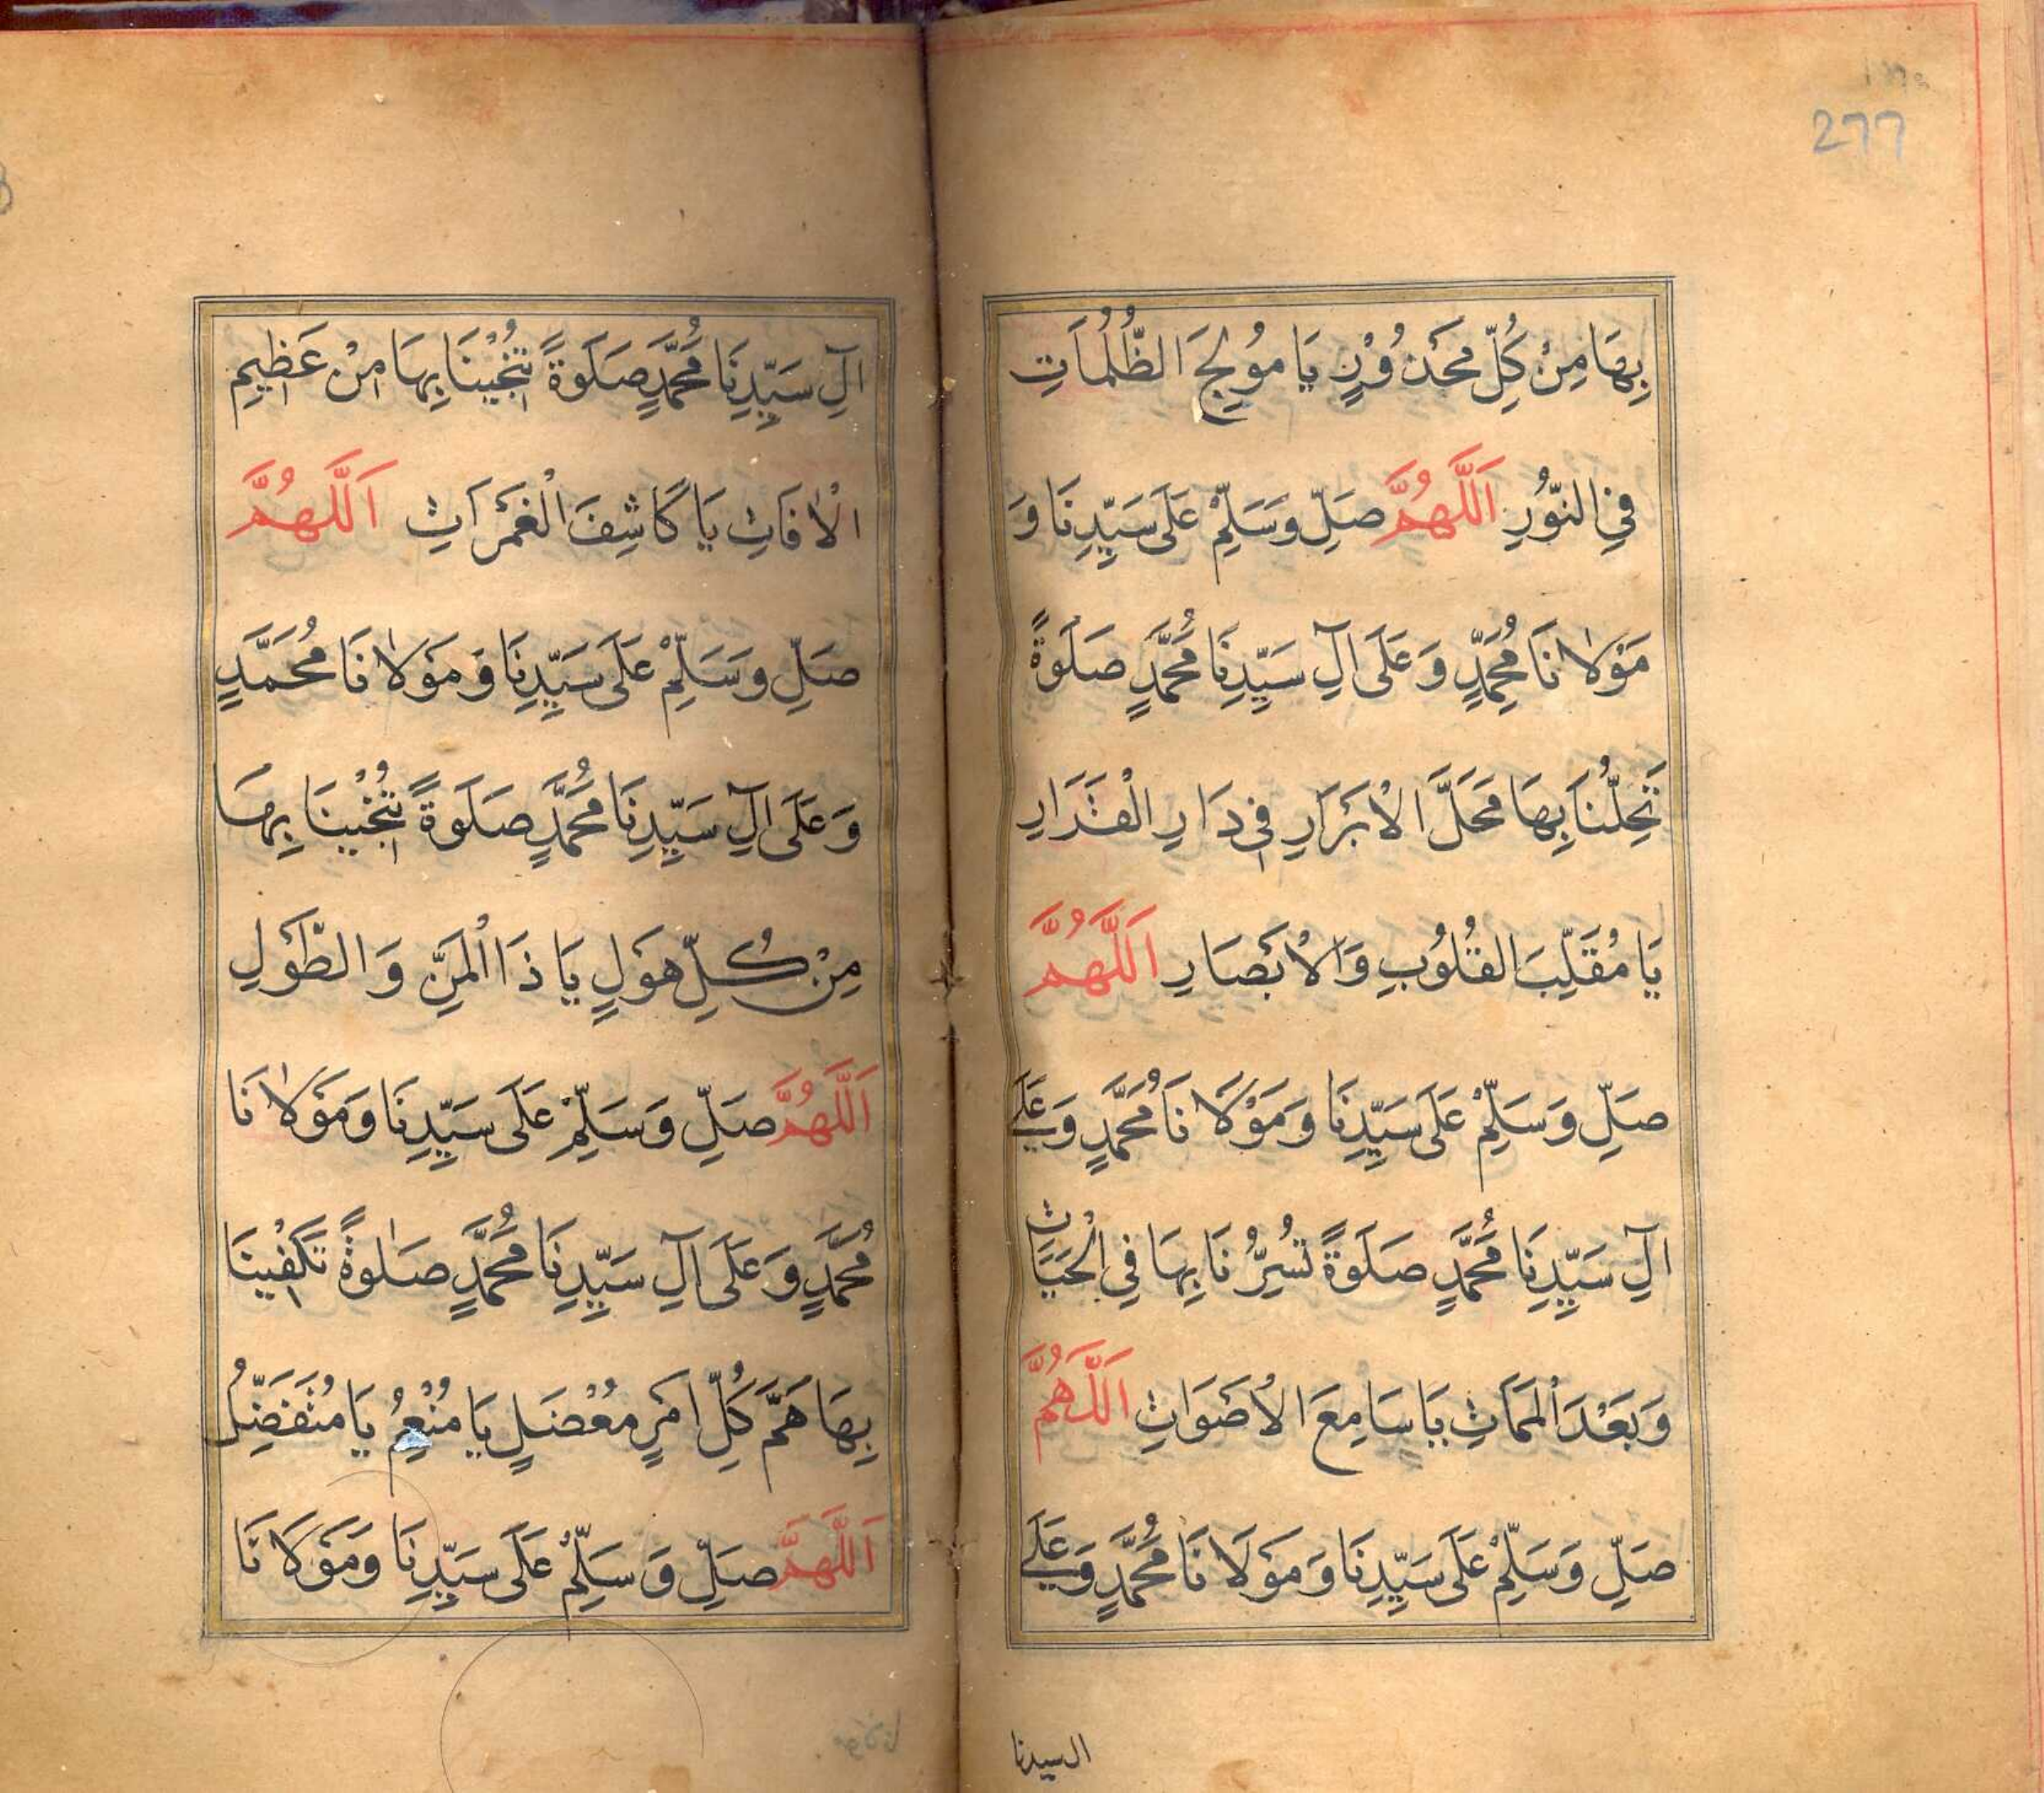 277
بِهَا مِنْ كُلِّ مَحْذُوْرٍ يَا مُوْلِجَ الظُّلُمَاتِ
فِي النُّوْرِ اَللّٰهُمَّ صَلِّ وَسَلِّمْ عَلَى سَيِّدِنَا وَ
مَوْلَانَا مُحَمَّدٍ وَعَلَى اٰلِ سَيِّدِنَا مُحَمَّدٍ صَلٰوةً
تُحِلُّنَا بِهَا مَحَلَّ الْاَبْرَارِ فِي دَارِ الْقَرَارِ
يَا مُقَلِّبَ القُلُوْبِ وَالْاَبْصَارِ اَللّٰهُمَّ
صَلِّ وَسَلِّمْ عَلَى سَيِّدِنَا وَمَوْلَانَا مُحَمَّدٍ وَعَلٰى
اٰلِ سَيِّدِنَا مُحَمَّدٍ صَلَوةً تَسُرُّنَا بِهَا فِي الْحَيَاتِ
وَبَعْدَ الْمَمَاتِ يَا سَامِعَ الْاَصْوَاتِ اَللّٰهُمَّ
صَلِّ وَسَلِّمْ عَلَى سَيِّدِنَا وَمَوْلَانَا مُحَمَّدٍ وَعَلٰى
ال سيدنا
اٰلِ سَيِّدِنَا مُحَمَّدٍ صَلَوةً تُنْجِيْنَا بِهَا مِنْ عَظِيْمِ
الْاٰفَاتِ يَا كَاشِفَ الْغَمَرَاتِ اَللّٰهُمَّ
صَلِّ وَسَلِّمْ عَلَى سَيِّدِنَا وَمَوْلَانَا مُحَمَّدٍ
وَعَلَى اٰلِ سَيِّدِنَا مُحَمَّدٍ صَلَوةً تُنْجِيْنَا بِهَا
مِنْ كُلِّ هَوْلٍ يَا ذَا الْمَنِّ وَالطَّوْلِ
اَللّٰهُمَّ صَلِّ وَسَلِّمْ عَلَى سَيِّدِنَا وَمَوْلَانَا
مُحَمَّدٍ وَعَلَى اٰلِ سَيِّدِنَا مُحَمَّدٍ صَلٰوةً تَكْفِيْنَا
بِهَا هَمَّ كُلِّ اَمْرٍ مُعْضَلٍ يَا مُنْعِمُ يَا مُتَفَضِّلُ
اَللّٰهُمَّ صَلِّ وَسَلِّمْ عَلَى سَيِّدِنَا وَمَوْلَانَا
مولانا